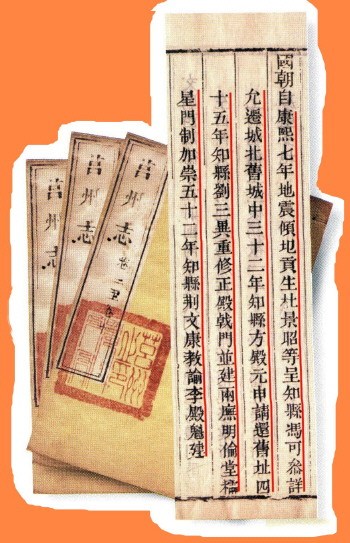 國朝自康熙七年地震傾圮貢生杜景昭等呈知縣馮可參詳
允遷城北舊城中三十二年知縣方殿元申請還舊址四
十五年知縣劉三異重修正殿戟門並建兩廡明倫堂櫺
星門制加崇五十二年知縣荊文康教諭李殿魁建
莒州志
莒州志
莒州志